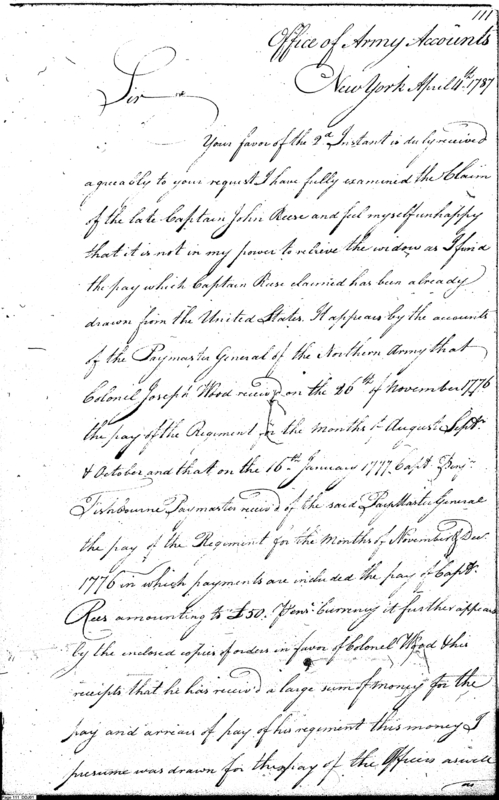 111
Office of Army Accounts
New York April 4th. 1787
Sir
Your favor of the 2d Instant is duly received
agreably to your request I have fully examined the Claim
of the late Captain John Reese and feel myself unhappy
that it is not in my power to releive the widow as I find
the pay which Captain Reese claimed has been already
drawn from the United States. It appears by the accounts
of the Paymaster General of the Northern Army that
Colonel Joseph Wood received on the 26th of November 1776
the pay of the Regiment for the months of August Sept.
& October and that on the 16th January 1777 Capt. Benjn.
Fishbourne Paymaster receiv'd of the said PayMaster General
the pay of the Regiment for the Months of November & Decr.
1776 in which payments are included the pay of Capt.
Rees amounting to £50. Pens. Currency it further appears
by the enclosed copies of orders in favor of Colonel Wood & his
receipts that he has receiv'd a large sum of money for the
pay and arrears of pay of his regiment this money I
presume was drawn for the pay of the Officers as well